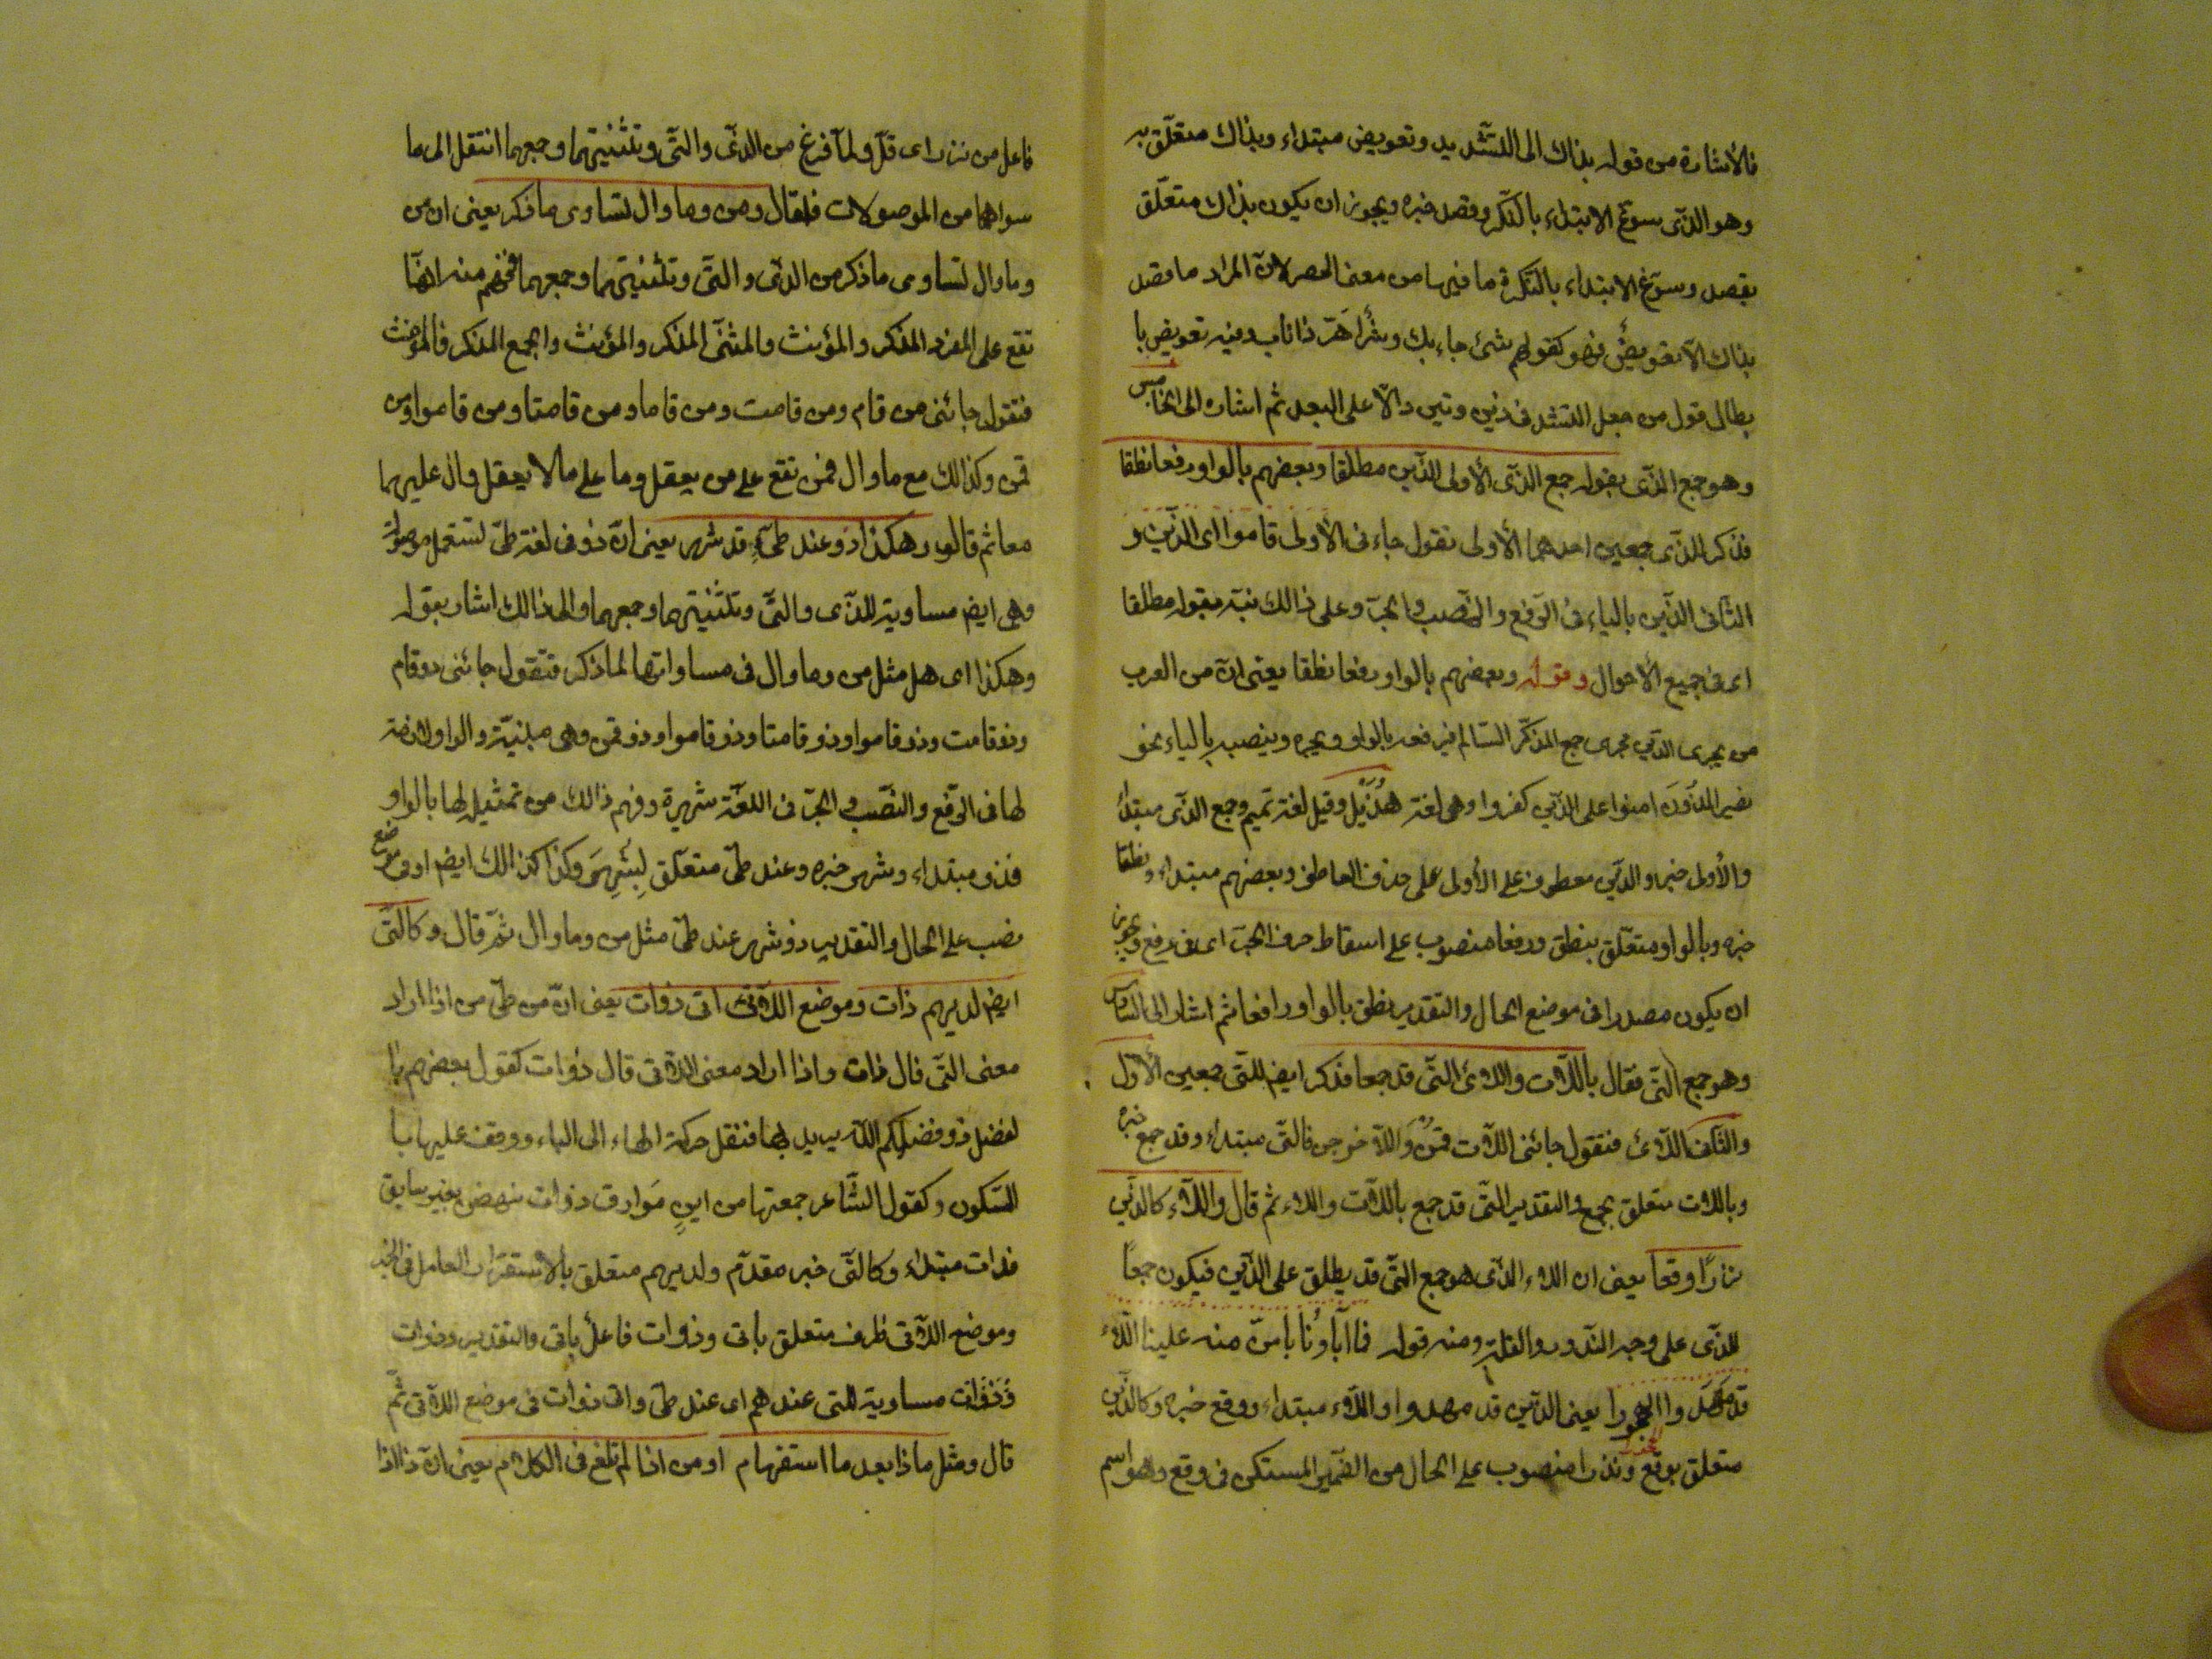 فالأشارة من قوله بذاك الى التشديد وتعويض مبتداء وبذاك متعلّق به
وهو الذى سوغ الابتداء بالنكر وقصد خبره ويجوز ان يكون بذاك متعلّق
بقصد وسوّغ الابتداء بالنكرة ما فيها من معنى الحصر لانّ المراد ما قصد
بذاك الّا تعويضٌ فهو كقولهم شئ جاء بك وشرٌ اهرّ ذا ناب وفيه تعويض با
بطال قول من جعل التشد فى ذين وتين دالّا على البعد ثم اشار الى الخامس
وهو جمع الذى بقوله جمع الذى الأولى الذين مطلقا وبعضهم بالواو رفعا نطقا
فذكر للذى جمعين احدهما الأولى تقول جاءنى الأولى قاموا اى الذين و
الثانى الذين بالياء فى الرّفع والنّصب والجرّ وعلى ذالك نبّه بقوله مطلقا
اى فى جميع الأحوال وقوله وبعضهم بالواو رفعا نطقا يعنى انّ من العرب
من يجرى الذين مجرى جمع المذكّر السّالم فيرفعه بالواو ويجره وينصبه بالياء نحو
نصير اللذون امنوا على الذين كفروا وهى لغة هذيل وقيل لغة تميم وجمع الذى مبتداء
والأولى خبر والذين معطوف على الأولى على حذف العاطف وبعضهم مبتداء ونطقا
خبره وبالواو متعلّق بنطق ورفعا منصوب على اسقاط حرف الجرّ اى فى رفع ويجوز
ان يكون مصدرا فى موضع الحال والتقدير نطق بالواو رافعا ثم اشار الى السّادس
وهو جمع التّى فقال باللّات واللاء التّى قد جمعا فذكر ايض للتّى جمعين الأوّل
والثانى اللاء فتقول جائنى اللّات قمن واللاء خرجن فالتّى مبتداء وقد جمع خبره
وباللات متعلق بجمع والتقدير التّى قد جمع باللّات واللاء ثم قال واللّاء كالذين
نزرًا وقعا يعنى ان اللاء الذى هو جمع التّى قد يطلق على الذين فيكون جمعًا
للذى على وجه النّدور والقلة ومنه قوله فما آباؤنا بامنّ منه علينا اللّاء
قد مهدوا الحجورا يعنى الذين قد مهدوا واللّاء مبتداء ووقع خبره وكالذين
متعلق بوقع ونزرا منصوب على الحال من الضّمير المستكن فى وقع وهو اسم
فاعل من نزر اى قلّ ولمّا فرغ من الذى والتّى وتثنيتهما وجمعهما انتقل الى ما
سواهما من الموصولات فقال ومن وما وال تساوى ما ذكر يعنى ان من
وما وال تساوى ما ذكر من الذى والتّى وتثنيتهما وجمعهما ففهم منه انّها
تقع على المفرد المذكر والمؤنث والمثنّى المذكر والمؤنث والجمع المذكر والمؤنث
فتقول جائنى من قام ومن قامت ومن قاما ومن قامتا ومن قاموا ومن
قمن وكذالك مع ما وال فمن تقع على من يعقل وما على ما لا يعقل وال عليهما
معا ثم قال وهكذا ذو عند طىّء قد شهر يعنى انّ ذو فى لغة طىّ تستعمل موصولة
وهى ايض مساوية للذى والتّى وتثنيتهما وجمعهما والى ذالك اشار بقوله
وهكذا اى هل مثل من وما وال فى مساواتها لما ذكر فتقول جائنى ذو قام
وذو قامت وذو قاموا وذو قامتا وذو قاموا وذو قمن وهى مبنيّة والواو لازمة
لها فى الرّفع والنصّب والجرّ فى اللغّة شهيرة وفهم ذالك من تمثيله لها بالواو
فذو مبتداء وشهر خبره وعند طىّ متعلّق بشهر وكذا كذالك ايض او فى موضع
نصب على الحال والتقدير ذو شهر عند طىّ مثل من وما وال ثمّ قال وكالتّى
ايض لديهم ذات وموضع اللّاتى اتى ذوات يعنى انّ من طىّ من اذا اراد
معنى التّى قال ذات واذا اراد معنى اللّاتى قال ذوات كقول بعضهم با
لفضل ذو فضلكم اللّه به يريد بها فنقل حركة الهاء الى الباء ووقف عليها با
لسّكون وكقول الشّاعر جمعتها من اينٍ موارق ذوات ينهض بغير سايق
فذات مبتداء وكالتّى خبر مقدّم ولديهم متعلق بالاستقرار العامل فى الخبر
وموضع اللّاتى ظرف متعلق باتى وذوات فاعل باتى والتقدير وذوات
وذوات مساوية للتى عندهم اى عند طىّ واتى ذوات فى موضع اللّاتى ثمّ
قال ومثل ماذا بعد ما استفهام او من اذا لم تلغ فى الكلام يعنى انّ ذا اذا